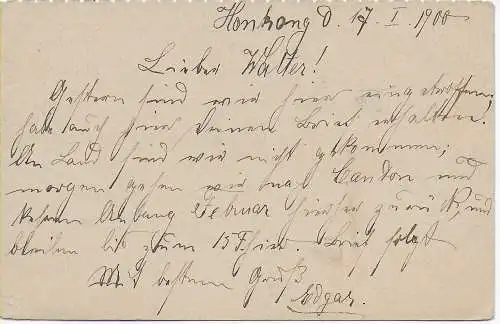 Honkong d. 17. I. 1900
Lieber Walter!
Gestern sind wir hier eingetroffen,
habe auch hier deinen Brief erhalten.
An Land sind wir nicht gekommen;
morgen gehen wir nac Canton und
kehren Anfang Februar hierher zurück, und
bleiben bis zum 15 F hier. Brief folgt
Mit bestem Gruß
Edgar.